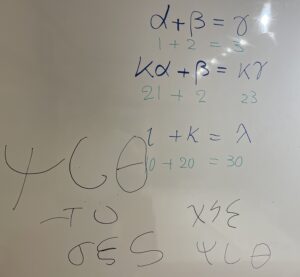 α+β = γ
1 + 2 = 3
κα+β = κγ
21 + 2 23
ι +κ = λ
10+20 = 30
ψ θ
χ ε
σ ε ψ θ